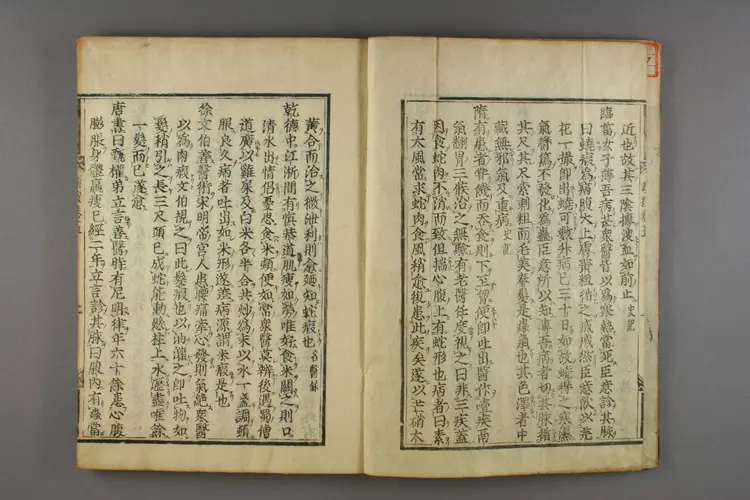 近也故其三陰搏溲血如前止 史記
臨菑女子薄吾病甚衆醫皆以為寒熱當死臣意診其脉
曰蟯瘕為病腹大上膚黄粗循之戚戚然臣意飲以芫
花一撮即出蟯可數升病已三十日如故蟯得之寒濕
氣鬱篤不發化為蟲臣意所以知薄吾病者切其脉循
其尺其尺索刺粗而毛美奉髮是蟲氣也其色澤者中
藏無邪氣及重病 史記
隋有患者甞饑而吞食則下至胷便即吐出醫作噎疾鬲
氣翻胃三候治之無驗有老醫任度視之曰非三疾蓋
因食蛇肉不消而致但揣心腹上有蛇形也病者曰素
有大風常求蛇肉食風稍愈復患此疾矣遂以芒硝大
黄合而治之微泄利則愈廼知蛇瘕也 名醫録
乾德中江浙間有慎恭道肌瘦如勞唯好食米闕之則口
清水出情似憂思食米頓便如常衆醫莫辨後遇蜀僧
道廣以雞屎及白米各半合共炒為末以水一盞調頓
服良久病者吐出如米形遂痊病源謂米瘕是也
徐文伯善醫術宋明帝宮人患腰痛牽心發則氣絶衆醫
以為肉瘕文伯視之曰此髮瘕也以油灌之即吐物如
髮稍引之長三尺頭已成蛇能動懸柱上水瀝盡唯餘
一髮而已遂愈
唐書曰甄權弟立言善醫時有尼明律年六十餘患心腹
膨脹身體羸瘦已經二年立言診其脉曰腹内有蟲當